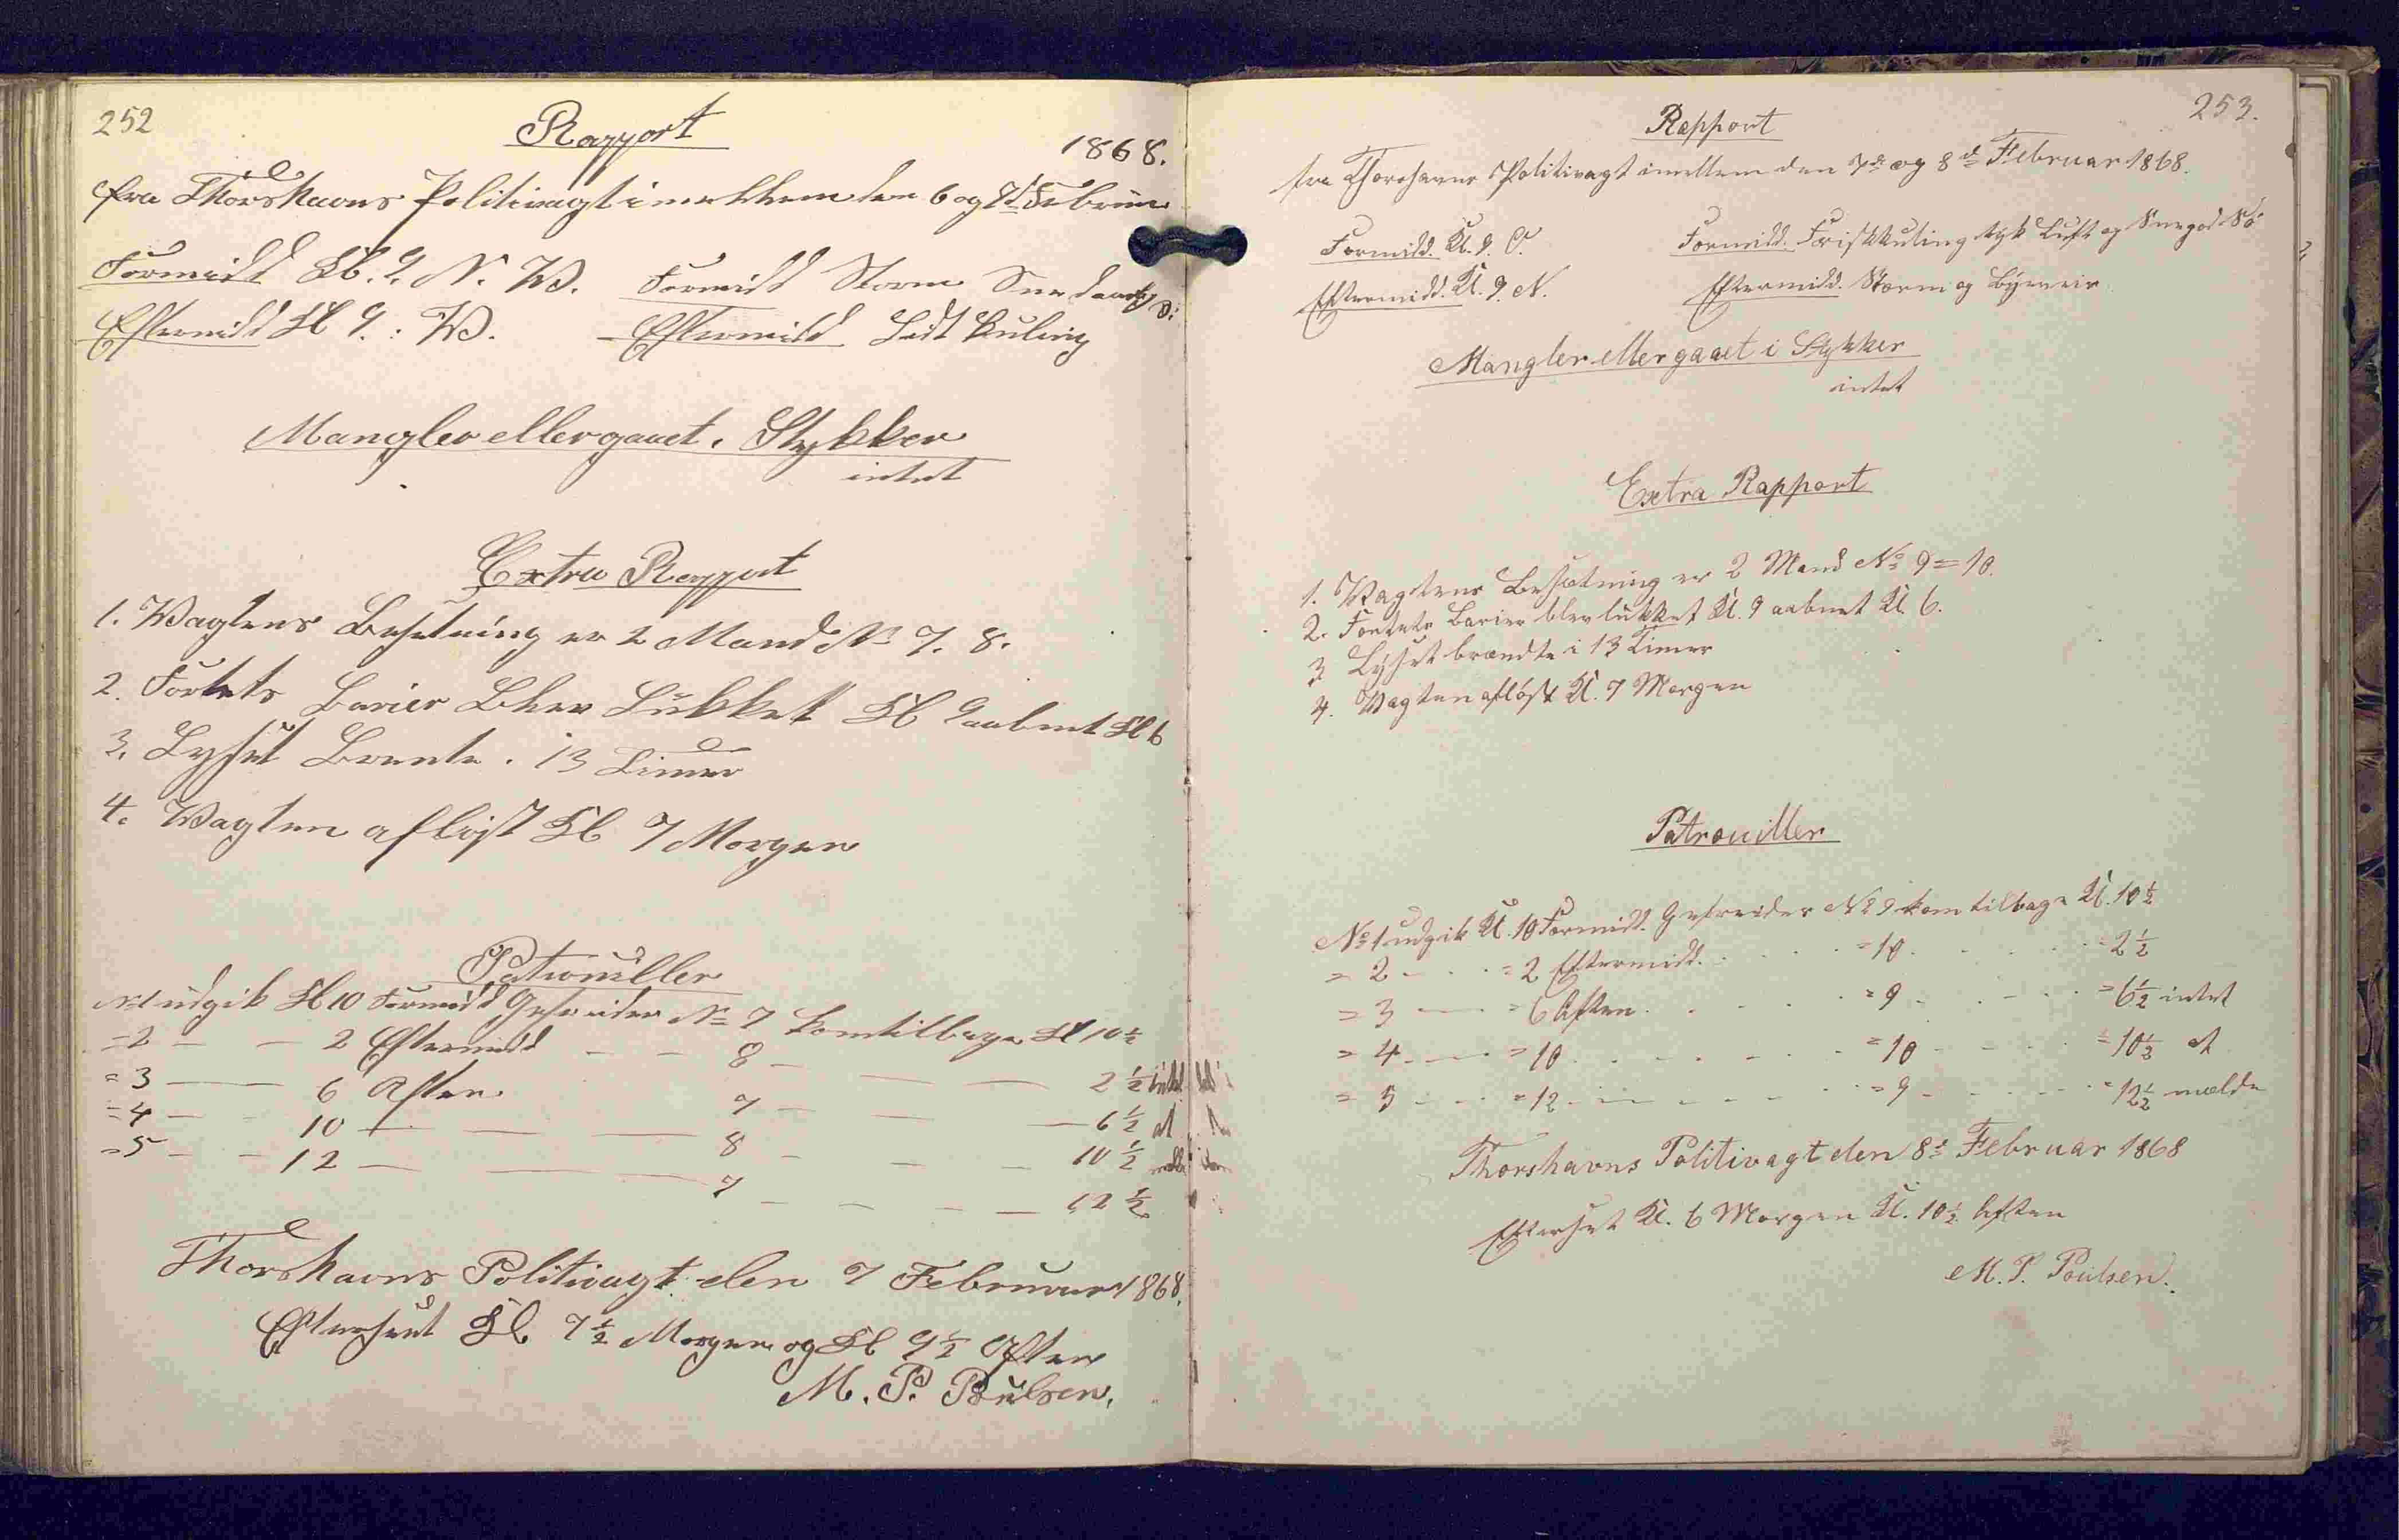 252
Rapport
1868.
fra Thorshavns Politivagt imellem den 6 og 7d Februar
Formidd Kl. 9. N. W. Formidd Storm
Eftermidd Kl 9. : W. Eftermidd Lidt Kuling
Mangler eller gaaet i Stykker
intet
Extra Rapport
1. Wagtens Besetning er 2 Mand No 7. 8.
2. Fortets Barier Blev Lukket Kl 9 aabnet Kl 6
3. Lyset Brente i 13 Timer
4. Wagten aflöst Kl 7 Morgen
Patrouiller
No 1 udgik Kl 10 Formidd Gefreider No 7 kom tilbage Kl 10 ½
=2 — — 2 Eftermidd — — 8 — — — 2 ½ intet
=3 — — 6 Aften 7 — — — 6 ½ at
=4 — — 10 — — — 8 — — — 10 ½ melde
=5 — — 12 — — — 7 — — — 12 ½
Thorshavns Politivagt den 7 Februar 1868.
Efterseet Kl 7 ½ Morgen og Kl 9 ½ Aften
M. P. Poulsen.
253.
Rapport
fra Thorshavns Politivagt imellem den 7de og 8de Februar 1868.
Formidd. Kl. 9. O. Formidd. Friskkuling tyk Luft og
Eftermidd. Kl. 9. N. Eftermidd. Storm og Byeveir
Mangler eller gaaet i Stykker
intet
Extra Rapport
1. Vagtens Besætning er 2 Mand No 9 = 10.
2. Fortets Barier blev lukket Kl. 9 aabnet Kl. 6.
3 Lyset brændte i 13 Timer
4. Vagten aflöst Kl. 7 Morgen
Patrouiller
No 1 udgik Kl. 10 Formidd. Gefreider No 9 kom tilbage Kl. 10 ½
= 2 - - = 2 Eftermidd. - - = 10 - - = 2 ½
= 3 — = 6 Aften - - = 9 - - = 6 ½ intet
= 4 - - = 10 - - - = 10 - - = 10 ½ at
= 5 - - = 12 - - - = 9 - - = 12 ½ melde
Thorshavns Politivagt den 8d Februar 1868
Efterset Kl. 6 Morgen Kl. 10 ½ Aften
M. P. Poulsen.